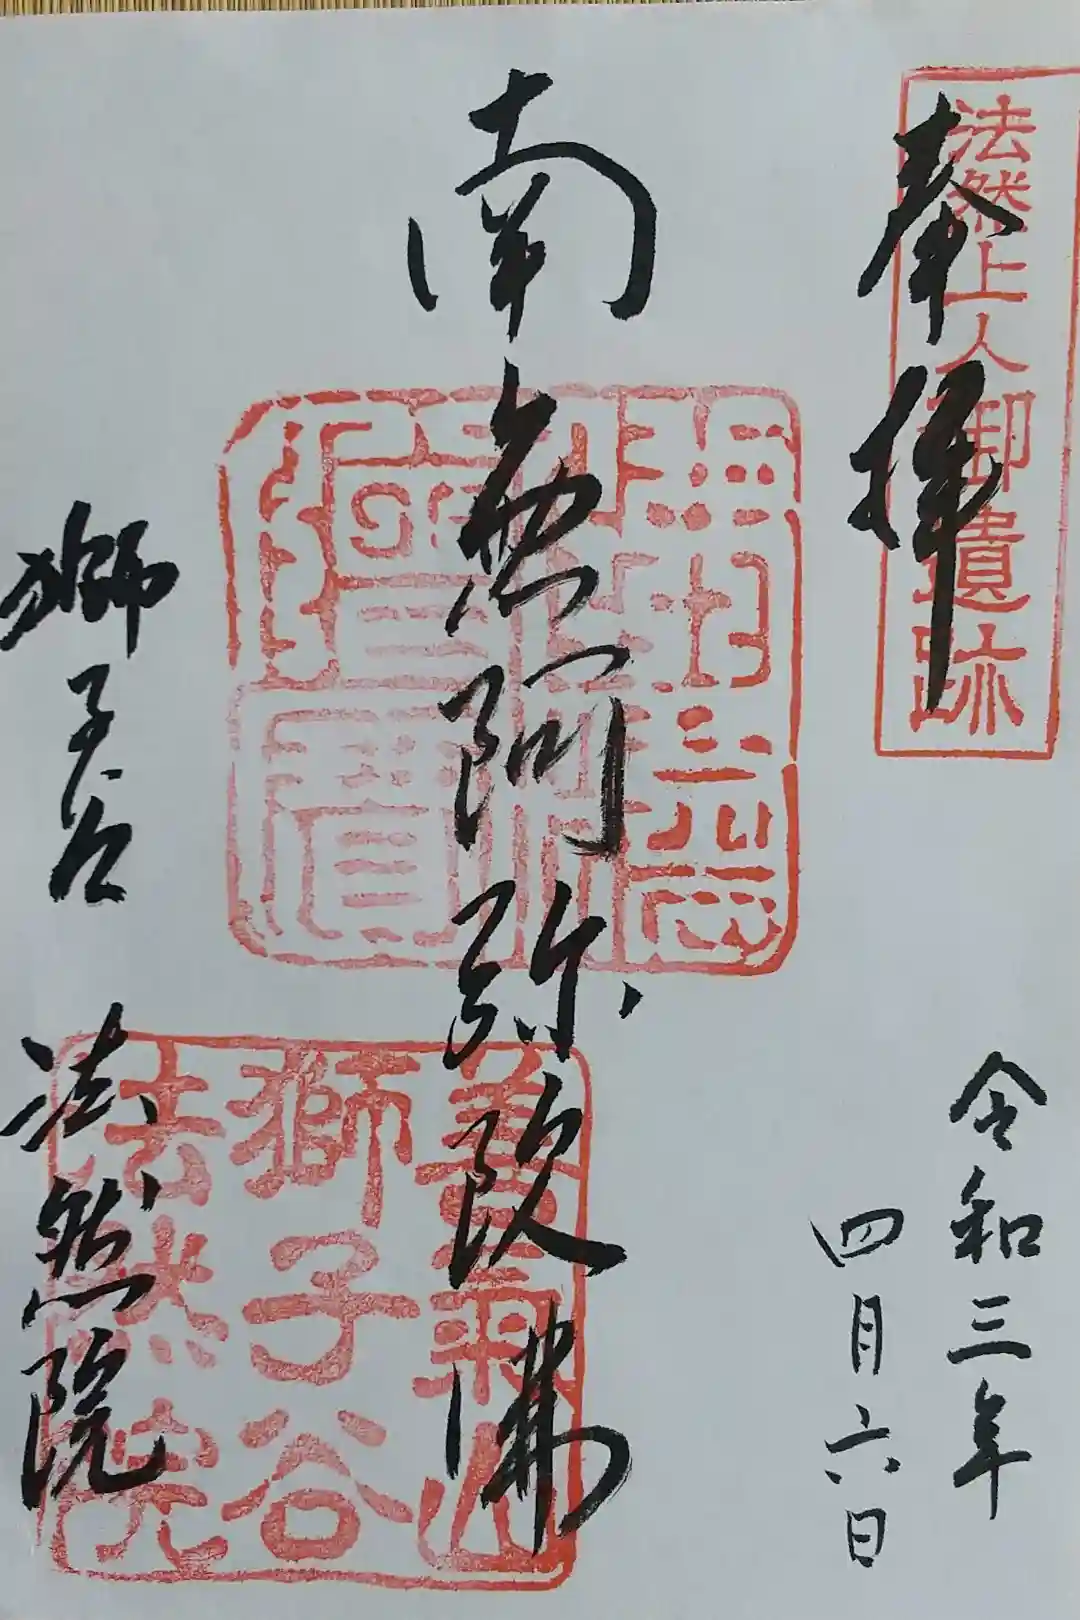 奉拝
法然上人御遺跡
令和三年
四月六日
南無阿弥陀佛
獅子谷 法然院
善氣山
獅子谷
法然院